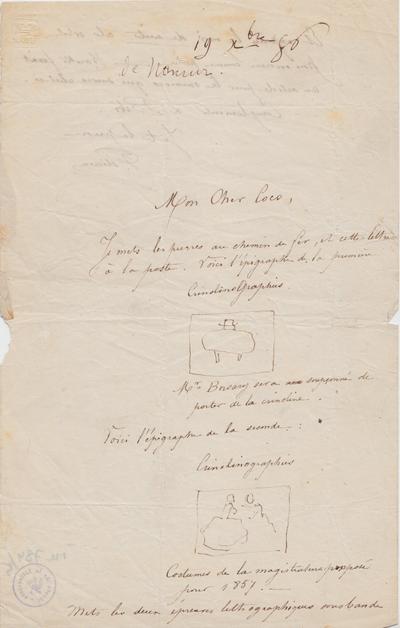 19 Xbre 56
de Namur.
Mon Cher Coco,
Je mets les pierres au chemin de fer, et cette lettre
à la poste. Voici l'épigraphe de la première
Crinolinographies
Mr. sera soupçonné de
porter de la crinoline.
Voici l'épigraphe de la seconde :
Crinolinographies
Costumes de la magistrature proposé
pour 1857 –
Mets les deux épreuves lithographiques sous bande